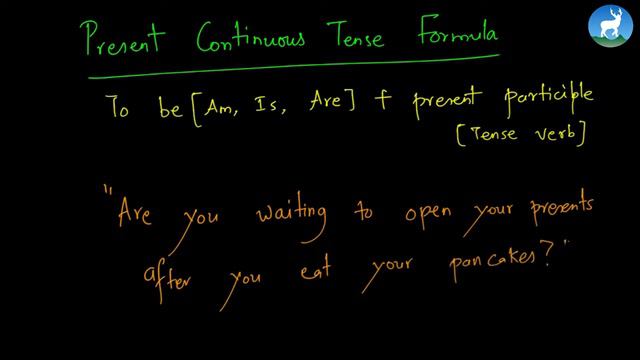 Present Continuous Tense Formula
To be [Am, Is, Are] + present participle
[Tense verb]
"Are you waiting to open your presents
after you eat your pancakes?"